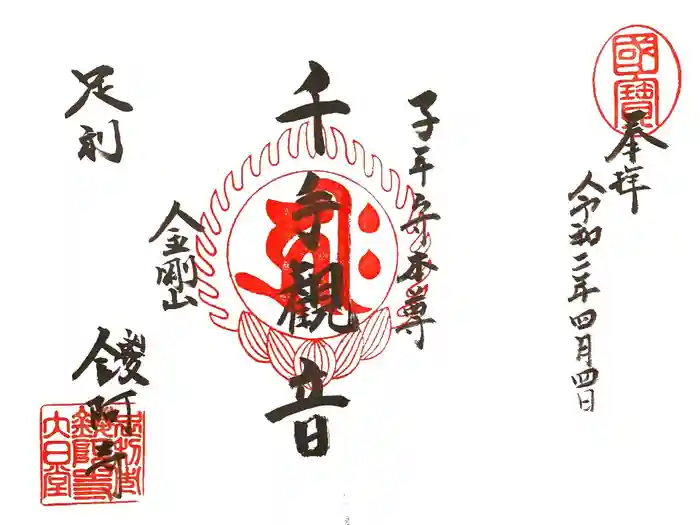 國寶
奉拝
令和二年四月四日
子年守本尊
千手観音
金剛山
足利
鑁阿寺
大日堂